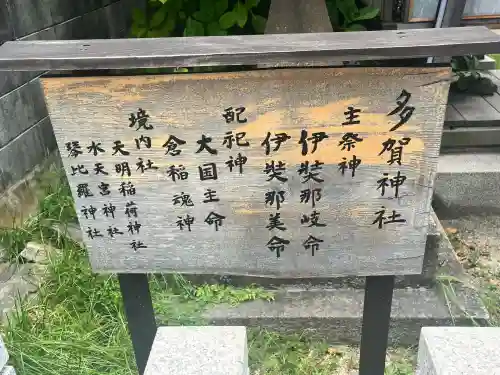 多賀神社
主祭神
伊弉那岐命
伊弉那美命
配祀神
大国主命
倉稲魂命
境内社
天明稲荷神社
水天宮神社
琴比羅神社